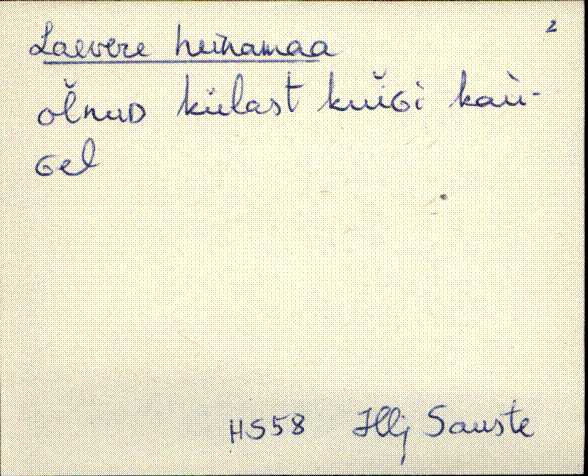 2
Laevere heinamaa
oľnuᴅ külast kuiɢi kaù-
ɢel
HS58 Hlj Sauste